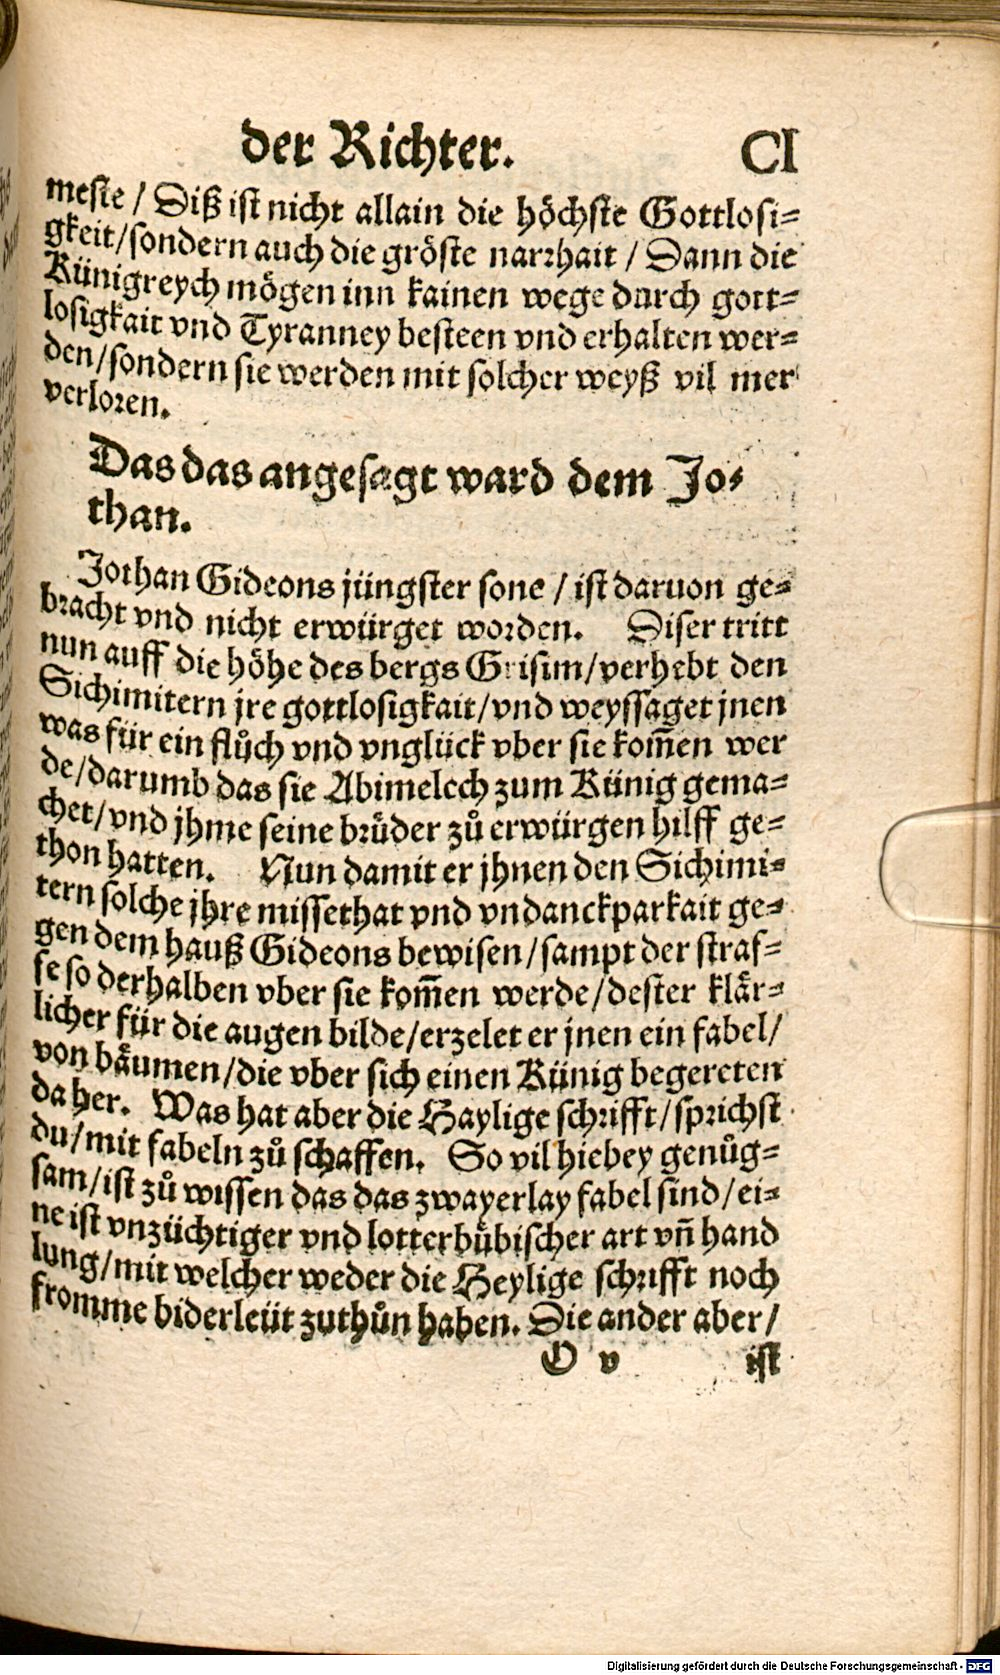 der Richter. CI
meste / Diß ist nicht allain die höchste Gottlosi=
gkeit/sondern auch die gröste narrhait / Dann die
Künigreych mögen inn kainen wege durch gott=
losigkait vnd Tyranney besteen vnd erhalten wer=
den/sondern sie werden mit solcher weyß vil mer
verloren.
Das das angesagt ward dem Jo=
than.
Jothan Gideons jüngster sone / ist daruon ge=
bracht vnd nicht erwürget worden. Diser tritt
nun auff die höhe des bergs Grisim/verhebt den
Sichimitern jre gottlosigkait/vnd weyssaget jnen
was für ein flůch vnd vnglück vber sie kom̃en wer
de/darumb das sie Abimelech zum Künig gema=
chet/vnd jhme seine brüder zů erwürgen hilff ge=
thon hatten. Nun damit er jhnen den Sichimi=
tern solche jhre missethat vnd vndanckparkait ge=
gen dem hauß Gideons bewisen/sampt der straf=
fe so derhalben vber sie kom̃en werde/dester klår=
licher für die augen bilde/erzelet er jnen ein fabel/
von båumen/die vber sich einen Künig begereten
da her. Was hat aber die Haylige schrifft/sprichst
du/mit fabeln zů schaffen. So vil hiebey genůg=
sam/ist zů wissen das das zwayerlay fabel sind/ei=
ne ist vnzüchtiger vnd lotterbübischer art vn̄ hand
lung/mit welcher weder die Heylige schrifft noch
fromme biderleüt zuthůn haben. Die ander aber/
O v ist
Digitalisierung gefördert durch die Deutsche Forschungsgemeinschaft - DFG